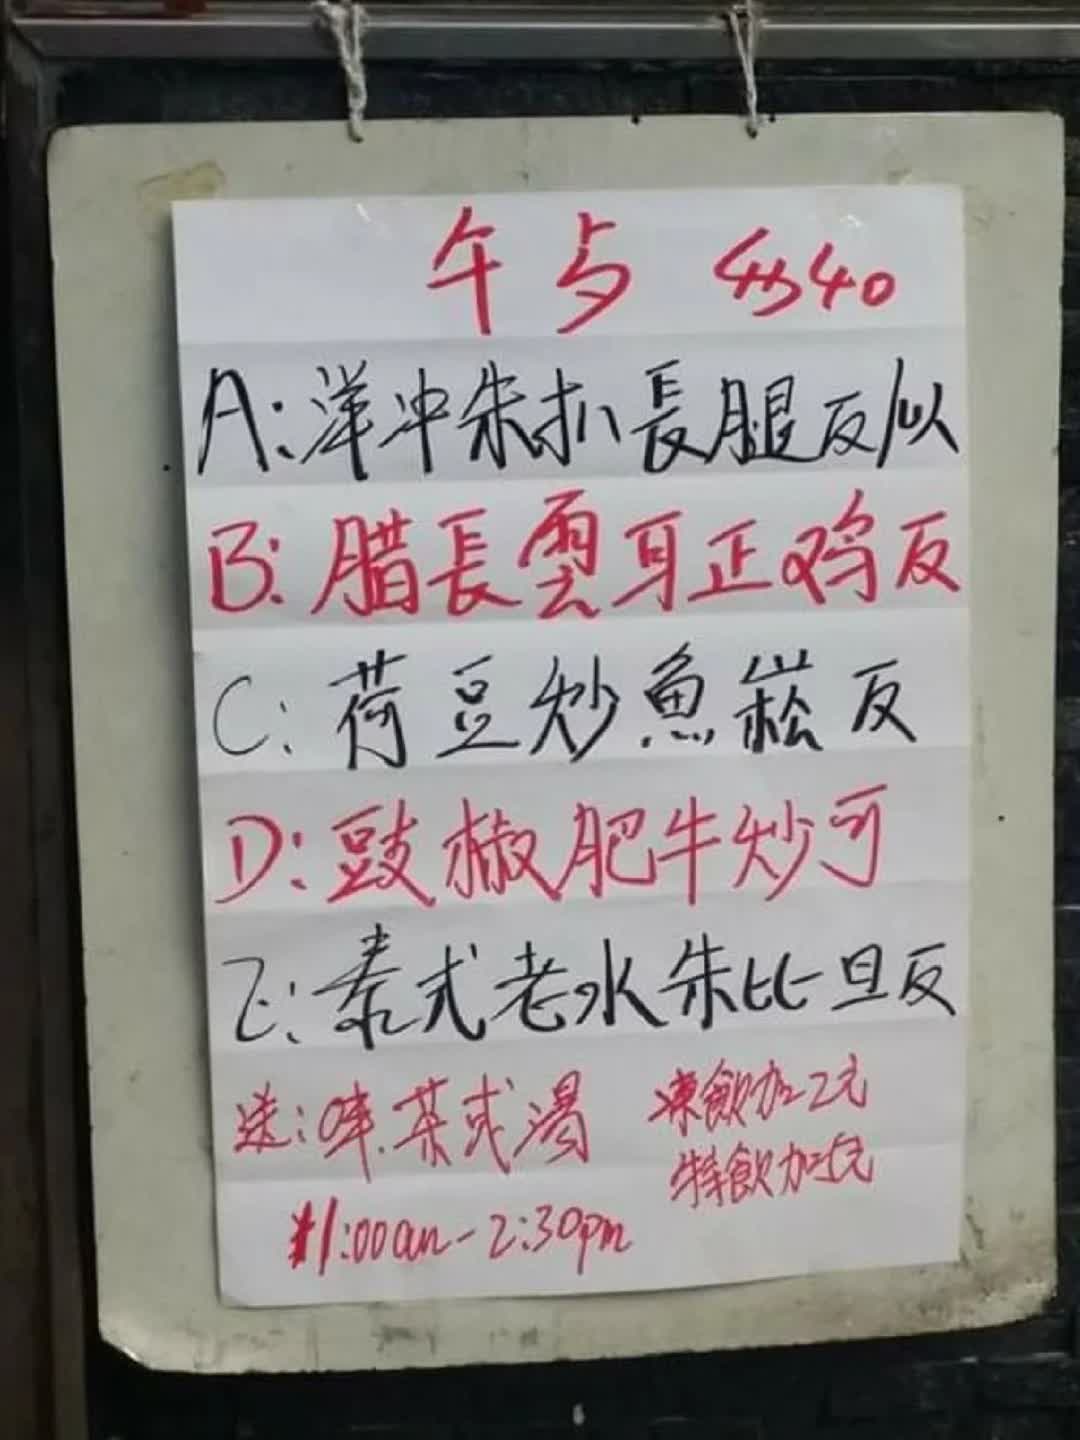 午点 $40
A:洋冲朱扒長腿反/似
B:腊長雲耳正鸡反
C:荷豆炒魚崧反
D:豉椒肥牛炒可
E:泰式老水朱比旦反
送:啡.茶或湯 凍飲加2元
特飲加5元
11:00am-2:30pm